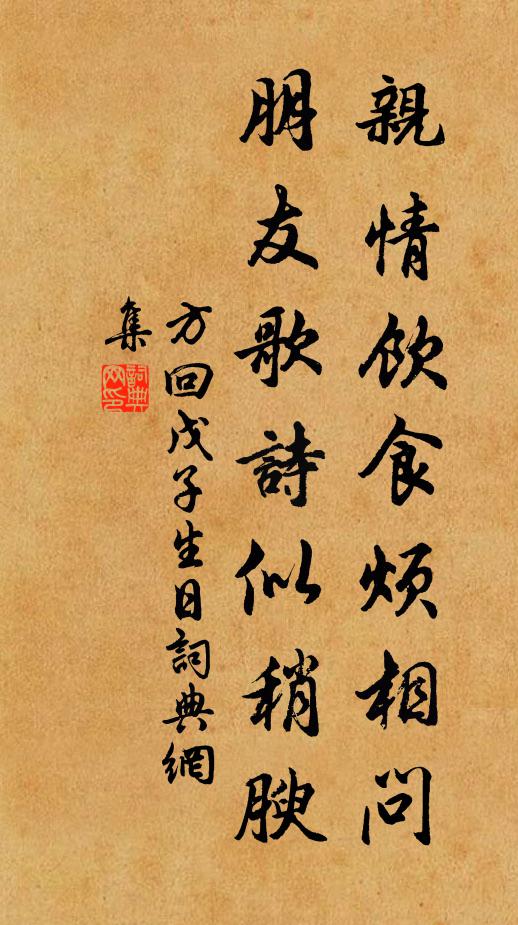 親情飲食煩相問
朋友歌詩似稍腴
方回戊子生日詞典網
集
詞典網印